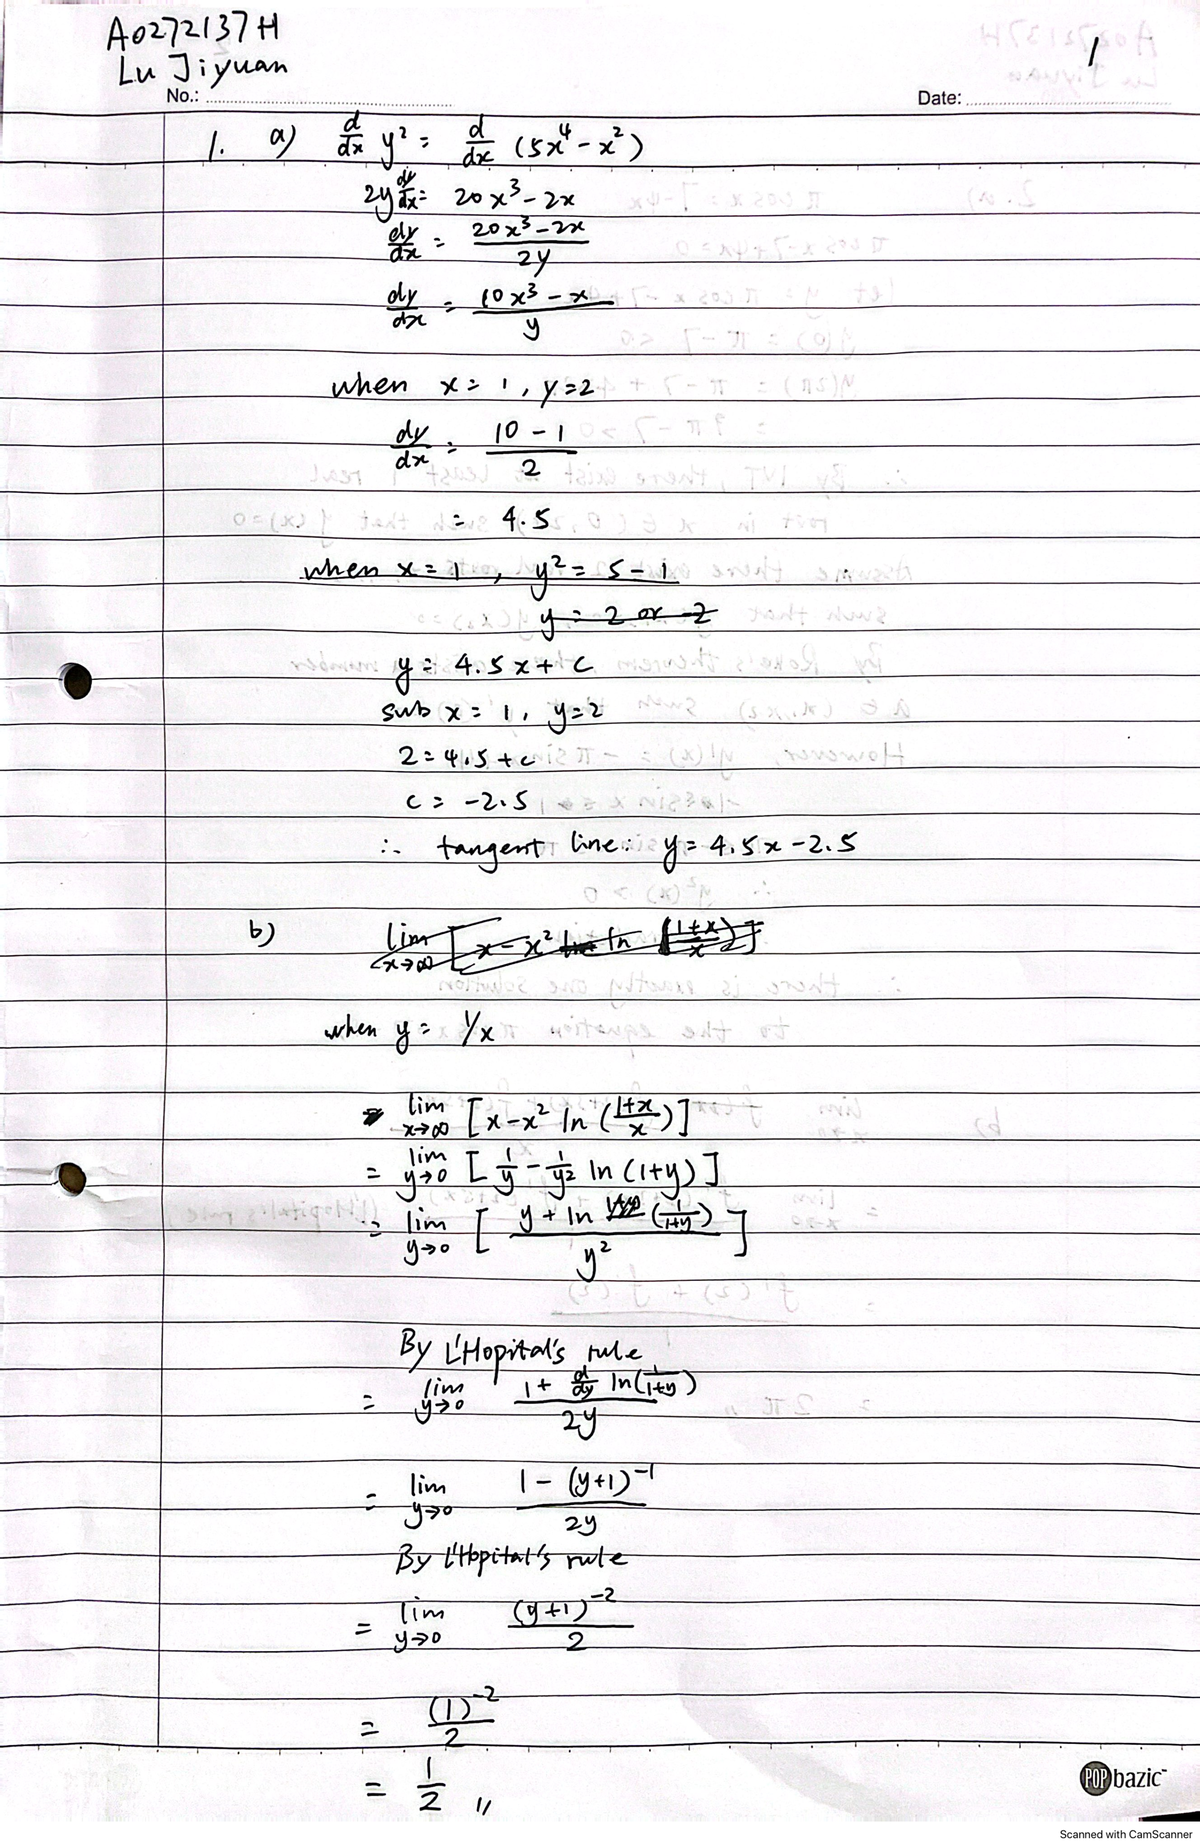 A0272137H
1
Lu Jiyuan
No.:
Date:
1. a) d/dx y² = d/dx (5x⁴ - x²)
2y dy/dx = 20x³ - 2x
dy/dx = (20x³ - 2x)/2y
dy/dx = (10x³ - x)/y
when x = 1, y = 2
dy/dx = (10 - 1)/2
= 4.5
when x = 1, y² = 5 - 1
y = 2 or -2
y = 4.5x + c
sub x = 1, y = 2
2 = 4.5 + c
c = -2.5
∴ tangent line: y = 4.5x - 2.5
b) lim x→∞ [x - x² ln (1+x/x)]
when y = 1/x
lim x→∞ [x - x² ln (1+x/x)]
= lim y→0 [1/y - 1/y² ln (1+y)]
= lim y→0 [(y + ln (1/1+y))/y²]
By L'Hopital's rule
= lim y→0 (1 + d/dy ln(1/1+y))/2y
= lim y→0 (1 - (y+1)⁻¹)/2y
By L'Hopital's rule
= lim y→0 (y+1)⁻²/2
= (1)⁻²/2
= 1/2 //
POP bazic™
Scanned with CamScanner